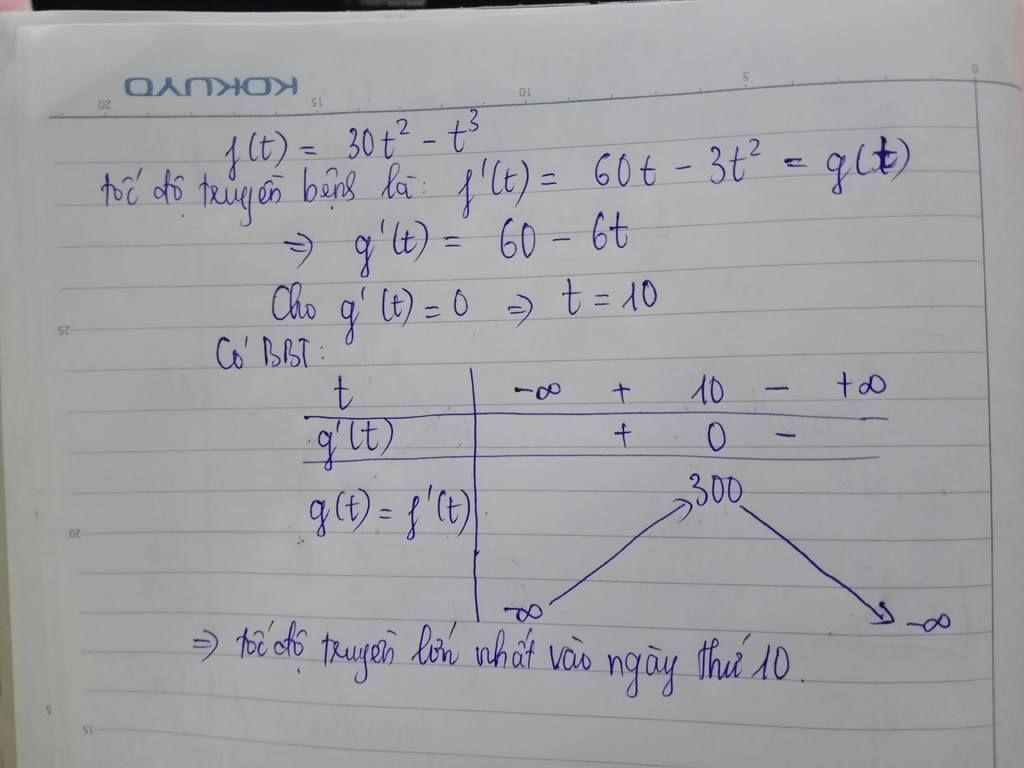 KOKUYO
0 5 10 15 20
f(t) = 30t² - t³
tốc độ truyền bệnh là: f'(t) = 60t - 3t² = g(t)
=> g'(t) = 60 - 6t
Cho g'(t) = 0 => t = 10
25
Có BBT:
t -∞ + 10 - +∞
g'(t) + 0 -
300
g(t) = f'(t)
20
-∞ -∞
=> tốc độ truyền lớn nhất vào ngày thứ 10.
5
15